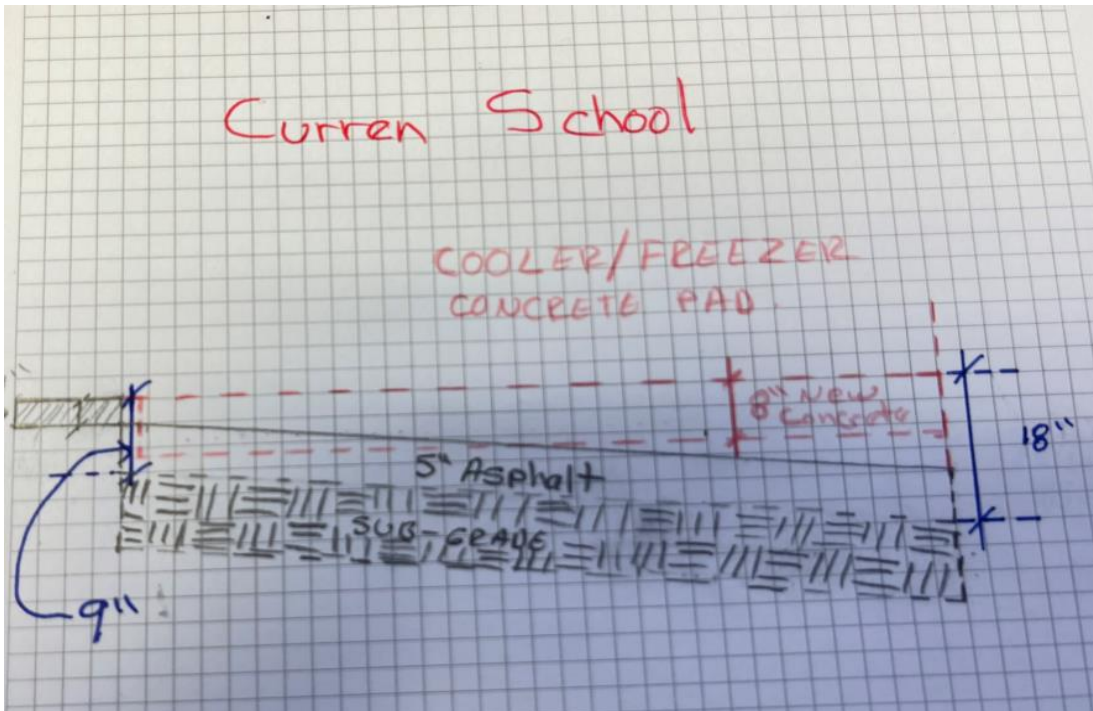 Curren School
COOLER/FREEZER
CONCRETE PAD
8" New
Concrete
18"
5" Asphalt
SUB-GRADE
9"